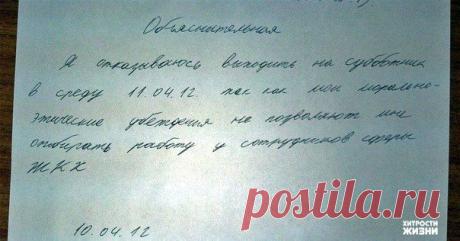 Объяснительная
Я отказываюсь выходить на субботник
в среду 11.04.12. так как мои морально-
этические убеждения не позволяют мне
отбирать работу у сотрудников сферы
ЖКХ
10.04.12
ХИТРОСТИ
ЖИЗНИ
postila.ru